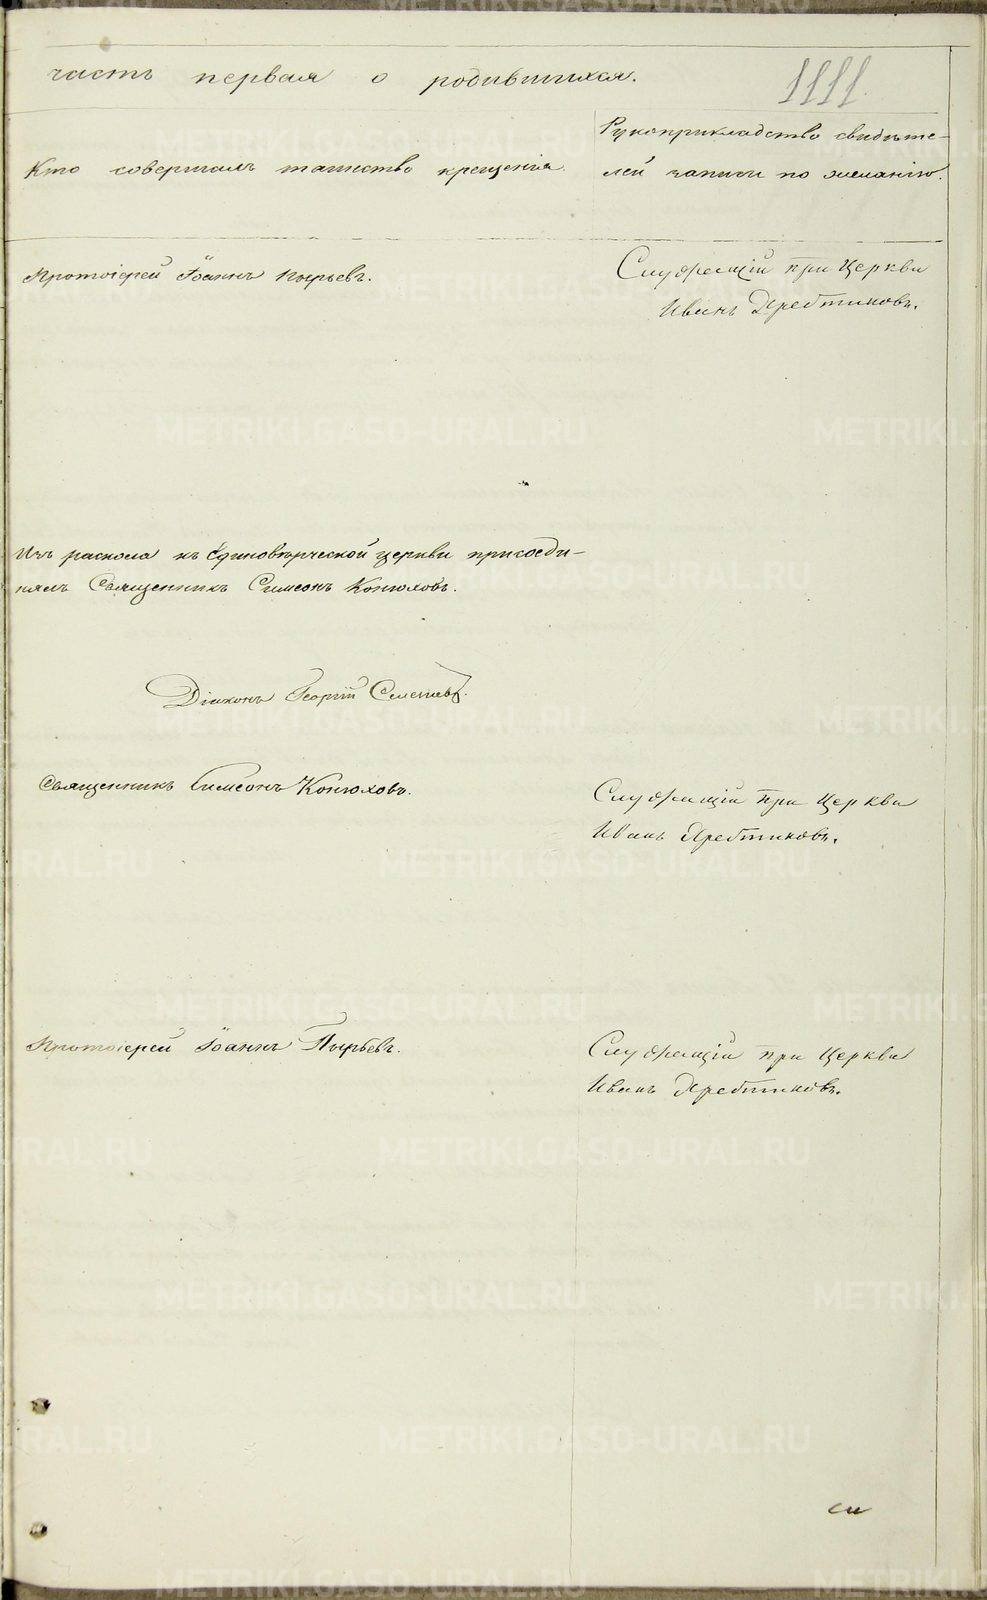 часть первая о родившихся.
1111.
Рукоприкладство свидѣте-
Кто совершалъ таинство крещенія.
лей записи по желанію.
Протоіерей Іоаннъ Пырьевъ.
Служащій при Церкви
Иванъ Дребтиковъ.
Изъ раскола къ Единовѣрческой церкви присоеди-
нялъ Священникъ Симеонъ Конюховъ.
Діаконъ Георгій
Священникъ Симеонъ Конюховъ.
Служащій при Церкви
Иванъ Дребтиковъ.
Протоіерей Іоаннъ Пырьевъ.
Служащій при Церкви
Иванъ Дребтиковъ.
METRIKI.GASO-URAL.RU